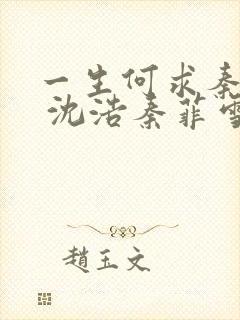 一生何求秦
沈浩秦菲雪
趙玉文